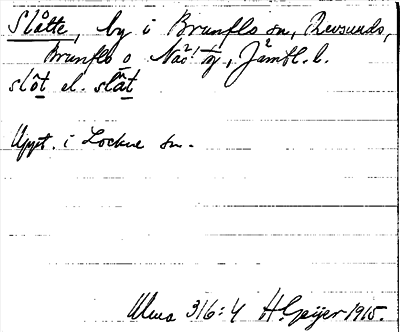 Slåtte, by i Brunflo sn, Revsunds,
Brunflo o Näs tg, Jämtl. l.
slöt el. slåt
Uppt. i Lockne sn.
Ulma 316:4 H. Geijer 1915.